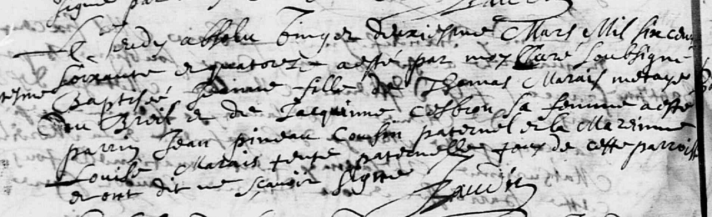 Le Jeudy absolu vingt deuxiesme Mars Mil six cens
soixante et quatorze a esté par moy Curé soubsigné
Baptisée fille de Thomas Marais mestayer
du Breil et de Jacquinne Cesbron sa femme a esté
parrin Jean pineau Cousin paternel et la Marinne
Louise Marais tente paternelle tous de cette parroisse
et ont dit ne sçavoir signer